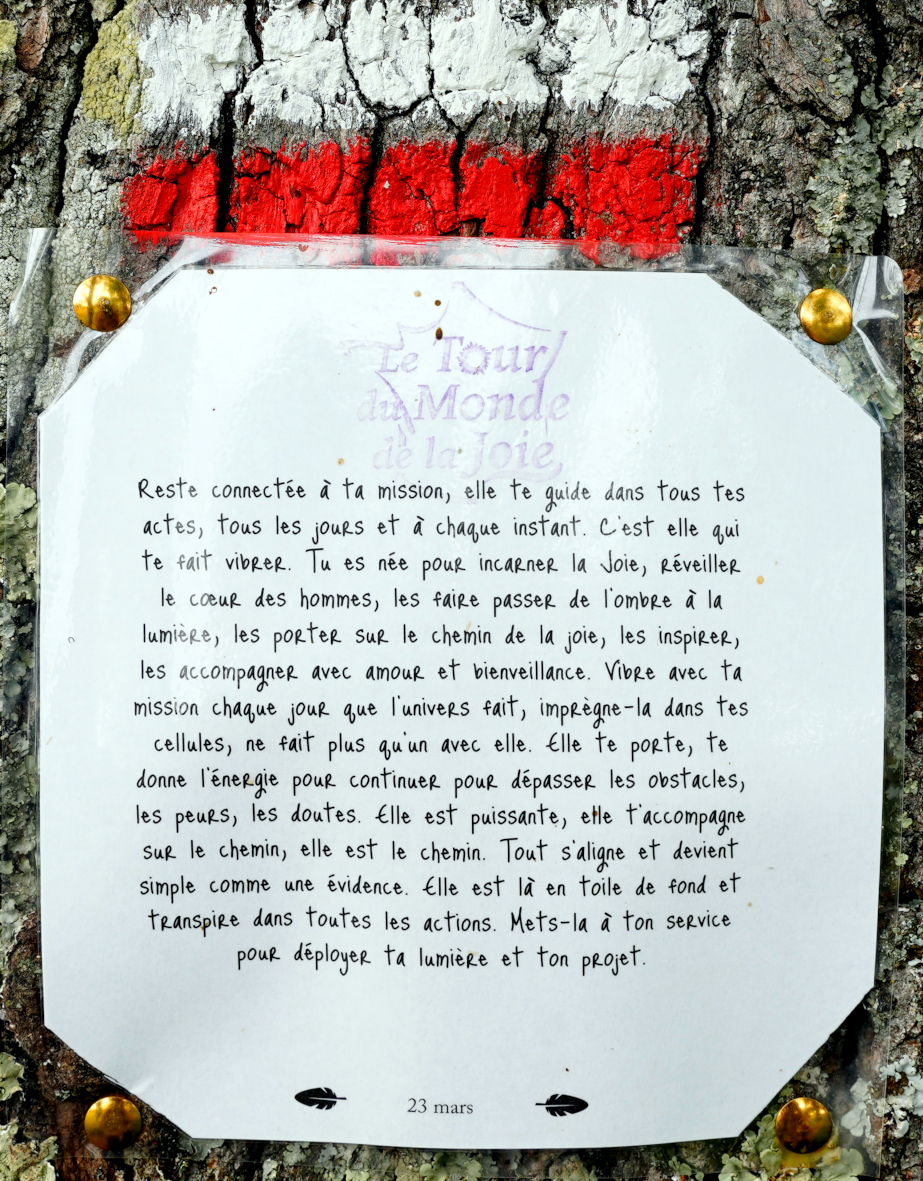 Le Tour
du Monde
de la Joie
Reste connectée à ta mission, elle te guide dans tous tes
actes, tous les jours et à chaque instant. C'est elle qui
te fait vibrer. Tu es née pour incarner la Joie, réveiller
le cœur des hommes, les faire passer de l'ombre à la
lumière, les porter sur le chemin de la joie, les inspirer,
les accompagner avec amour et bienveillance. Vibre avec ta
mission chaque jour que l'univers fait, imprègne-la dans tes
cellules, ne fait plus qu'un avec elle. Elle te porte, te
donne l'énergie pour continuer pour dépasser les obstacles,
les peurs, les doutes. Elle est puissante, elle t'accompagne
sur le chemin, elle est le chemin. Tout s'aligne et devient
simple comme une évidence. Elle est là en toile de fond et
transpire dans toutes les actions. Mets-la à ton service
pour déployer ta lumière et ton projet.
23 mars